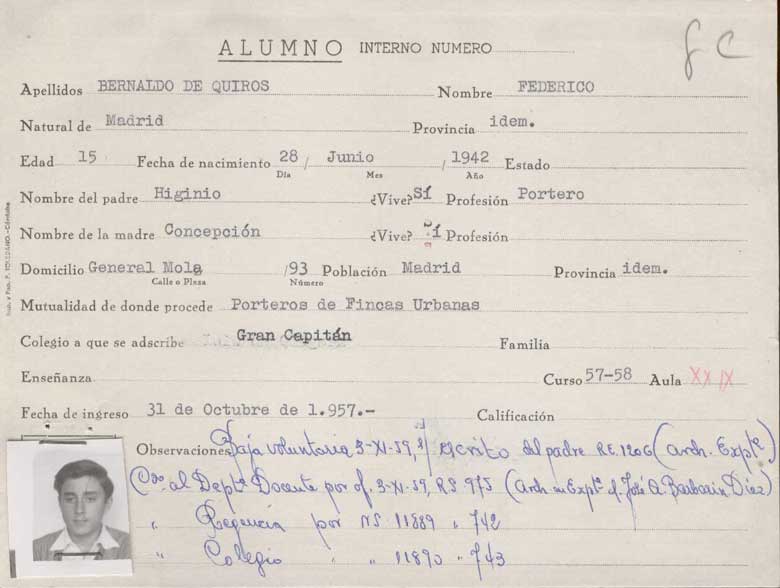 ALUMNO INTERNO NUMERO
g C
Apellidos BERNALDO DE QUIROS Nombre FEDERICO
Natural de Madrid Provincia idem.
Edad 15 Fecha de nacimiento 28 / Junio / 1942 Estado
Día Mes Año
Nombre del padre Higinio ¿Vive? Sí Profesión Portero
Nombre de la madre Concepción ¿Vive? Sí Profesión
Domicilio General Mola /93 Población Madrid Provincia idem.
Calle o Plaza Número
Mutualidad de donde procede Porteros de Fincas Urbanas
Colegio a que se adscribe Gran Capitán Familia
Enseñanza Curso 57-58 Aula XXIX
Fecha de ingreso 31 de Octubre de 1.957.- Calificación
Observaciones Baja voluntaria 3-XI-59, s/ escrito del padre R.E. 1206 (arch. Expte)
al Deptº Docente por of. 3-XI-59, R.S. 975 (Arch en Expte d. José A. Barbarin Diez)
" Regencia por NS 11889 " 742
" Colegio " " 11890 " 743